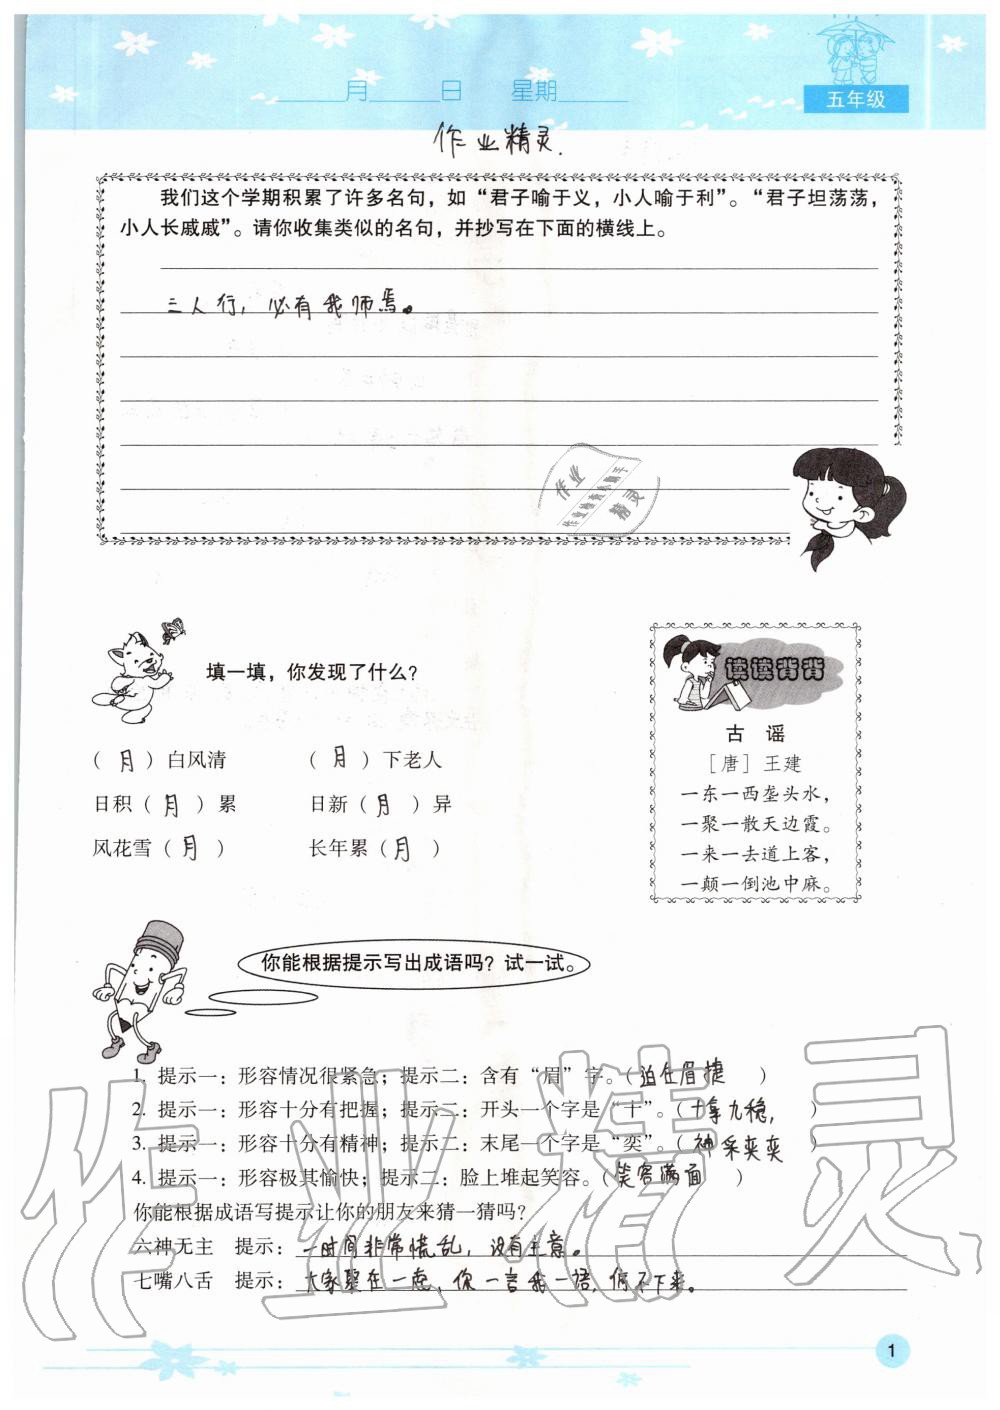 月 日 星期
五年级
作业精灵.
我们这个学期积累了许多名句，如“君子喻于义，小人喻于利”。“君子坦荡荡，
小人长戚戚”。请你收集类似的名句，并抄写在下面的横线上。
三人行，必有我师焉。
作业
作业检查小助手
精灵
填一填，你发现了什么？
（月）白风清 （月）下老人
日积（月）累 日新（月）异
风花雪（月） 长年累（月）
读读背背
古 谣
［唐］王建
一东一西垄头水，
一聚一散天边霞。
一来一去道上客，
一颠一倒池中麻。
你能根据提示写出成语吗？试一试。
1. 提示一：形容情况很紧急；提示二：含有“眉”字。（迫在眉捷）
2. 提示一：形容十分有把握；提示二：开头一个字是“十”。（十拿九稳，）
3. 提示一：形容十分有精神；提示二：末尾一个字是“奕”。（神采奕奕）
4. 提示一：形容极其愉快；提示二：脸上堆起笑容。（笑容满面）
你能根据成语写提示让你的朋友来猜一猜吗？
六神无主 提示：一时间非常慌乱，没有主意。
七嘴八舌 提示：大家聚在一起，你一言我一语，停不下来。
作业精灵
1